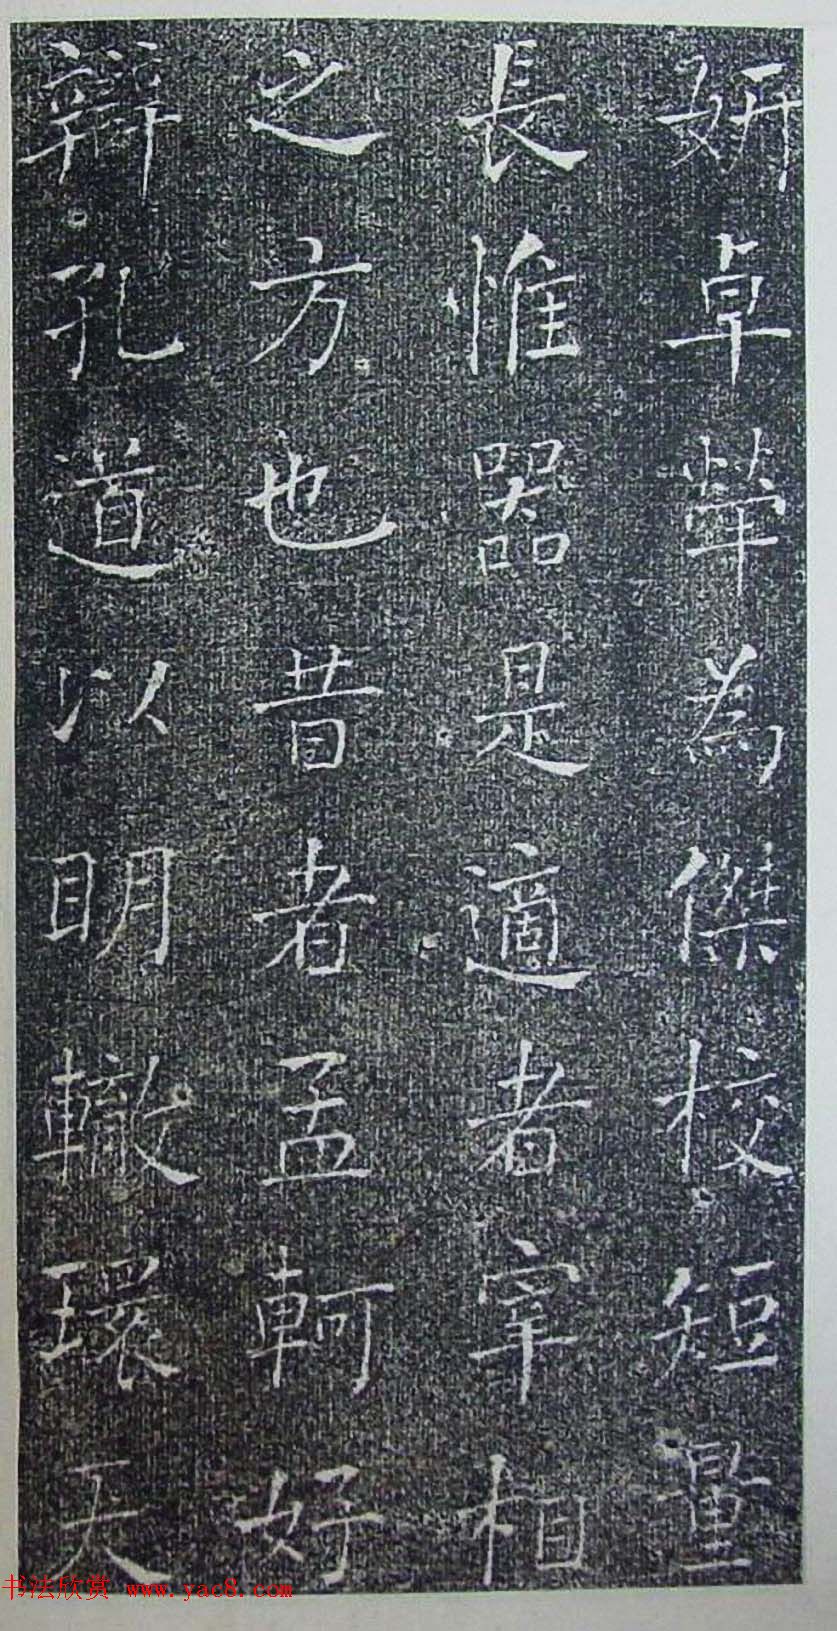 妍卓犖為傑校短量
長惟器是適者宰相
之方也昔者孟軻好
辯孔道以明轍環天
书法欣赏 www.yac8.com